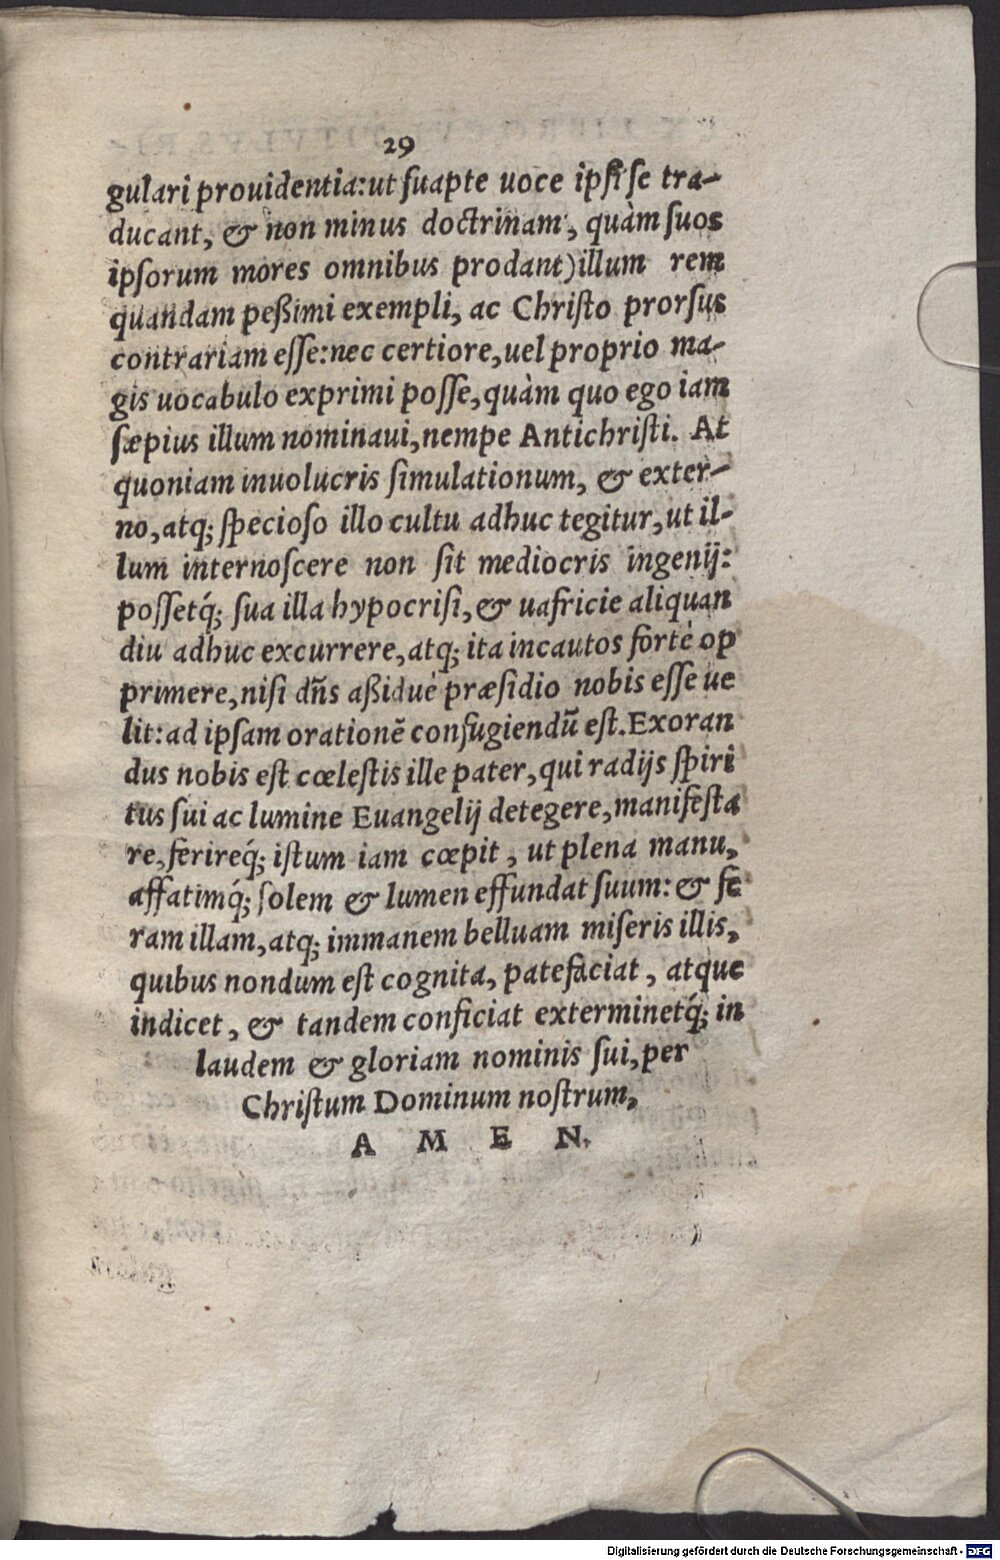 29
gulari prouidentia: ut ſuapte uoce ipſi ſe tra-
ducant, & non minus doctrinam, quàm ſuos
ipſorum mores omnibus prodant) illum rem
quandam peßimi exempli, ac Chriſto prorſus
contrariam eſſe: nec certiore, uel proprio ma-
gis uocabulo exprimi poſſe, quàm quo ego iam
ſæpius illum nominaui, nempe Antichriſti. At
quoniam inuolucris ſimulationum, & exter-
no, atq; ſpecioſo illo cultu adhuc tegitur, ut il-
lum internoſcere non ſit mediocris ingenij:
poſſetq́; ſua illa hypocriſi, & uafricie aliquan
diu adhuc excurrere, atq; ita incautos fortè op
primere, niſi dñs aßiduè præſidio nobis eſſe ue
lit: ad ipſam orationẽ confugiendũ eſt. Exoran
dus nobis eſt cœleſtis ille pater, qui radijs ſpiri
tus ſui ac lumine Euangelij detegere, manifeſta
re, ferireq́; iſtum iam cœpit, ut plena manu,
affatimq́; ſolem & lumen effundat ſuum: & fe
ram illam, atq; immanem belluam miſeris illis,
quibus nondum eſt cognita, patefaciat, atque
indicet, & tandem conficiat exterminetq́; in
laudem & gloriam nominis ſui, per
Chriſtum Dominum noſtrum,
A M E N.
Digitalisierung gefördert durch die Deutsche Forschungsgemeinschaft - DFG